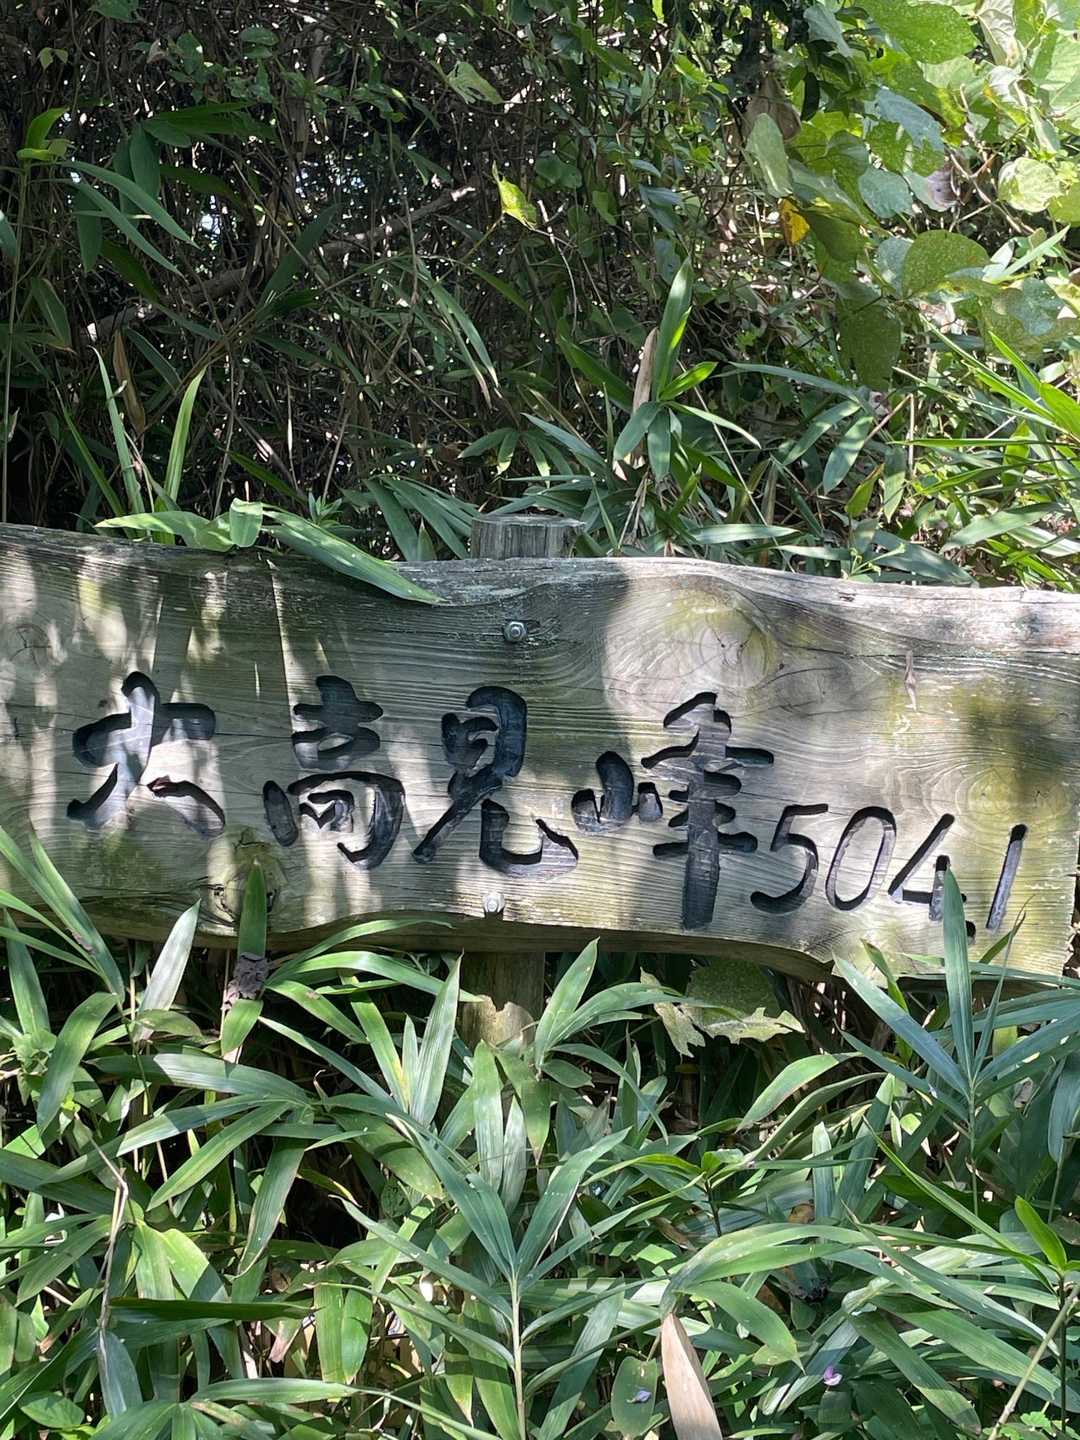 大高見峰504.1